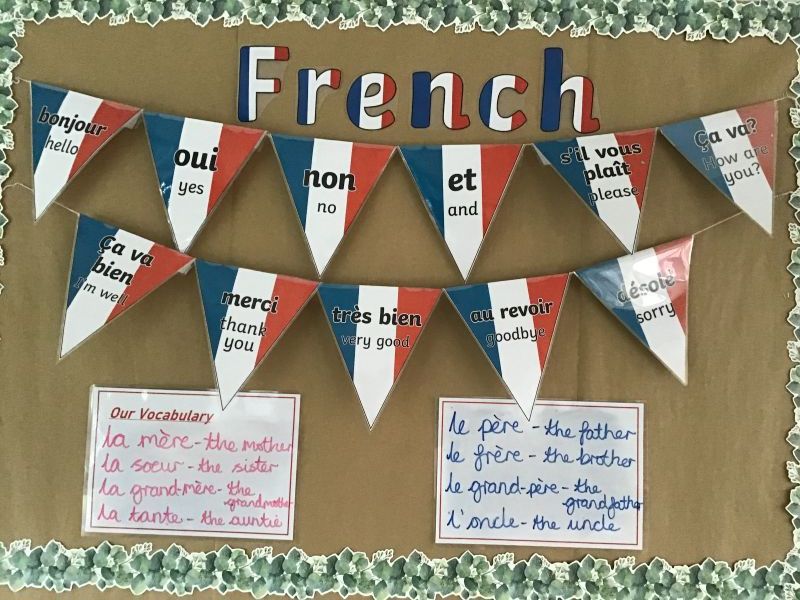 French
bonjour
hello
oui
yes
non
no
et
and
s'il vous
plaît
please
Ça va?
How are
you?
Ça va
bien
I'm well
merci
thank
you
très bien
very good
au revoir
goodbye
désolé
sorry
Our Vocabulary
la mère - the mother
la soeur - the sister
la grand-mère - the
grandmother
la tante - the auntie
le père - the father
le frère - the brother
le grand-père - the
grandfather
l'oncle - the uncle